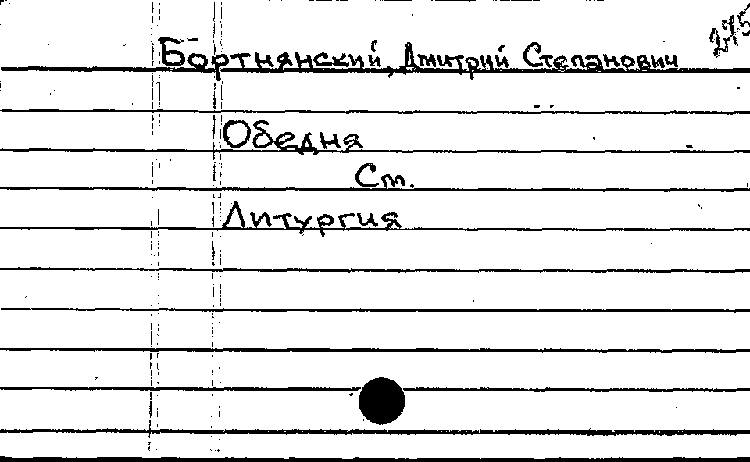 275
Бортнянский, Дмитрий Степанович
Обедня
См.
Литургия